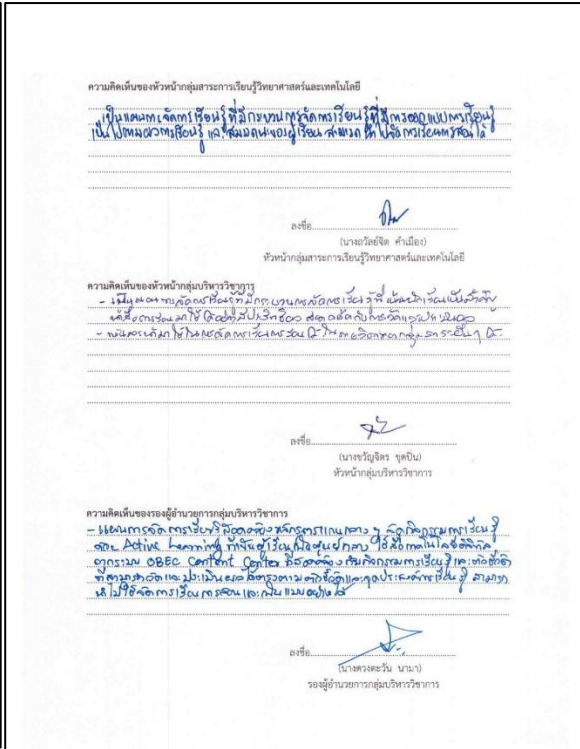 ความคิดเห็นของหัวหน้ากลุ่มสาระการเรียนรู้วิทยาศาสตร์และเทคโนโลยี
เป็นแผนการจัดการเรียนรู้ที่มีกระบวนการจัดการเรียนรู้ที่มีการออกแบบการเรียนรู้
เป็นไปตามผลการเรียนรู้ และสมรรถนะของผู้เรียน สามารถนำไปจัดการเรียนการสอนได้
ลงชื่อ
(นางถวัลย์จิต คำเมือง)
หัวหน้ากลุ่มสาระการเรียนรู้วิทยาศาสตร์และเทคโนโลยี
ความคิดเห็นของหัวหน้ากลุ่มบริหารวิชาการ
- เป็นแผนการจัดการเรียนรู้ที่มีกระบวนการจัดการเรียนรู้ที่เน้นนักเรียนเป็นสำคัญ
สอดคล้องกับการวัดและประเมินผล
ลงชื่อ
(นางขวัญจิตร ขุดปิน)
หัวหน้ากลุ่มบริหารวิชาการ
ความคิดเห็นของรองผู้อำนวยการกลุ่มบริหารวิชาการ
- แผนการจัดการเรียนรู้สอดคล้องหลักสูตรแกนกลาง ฯ จัดกิจกรรมการเรียนรู้
แบบ Active Learning ที่เน้นผู้เรียนเป็นศูนย์กลาง ใช้สื่อเทคโนโลยีดิจิทัล
จากระบบ OBEC Content Center ที่สอดคล้องกับกิจกรรมการเรียนรู้ และตัวชี้วัด
ที่สามารถวัดและประเมินผลได้ตรงตามตัวชี้วัดและจุดประสงค์การเรียนรู้ สามารถ
นำไปใช้จัดการเรียนการสอนและเป็นแบบอย่างได้
ลงชื่อ
(นางดวงตะวัน นามา)
รองผู้อำนวยการกลุ่มบริหารวิชาการ